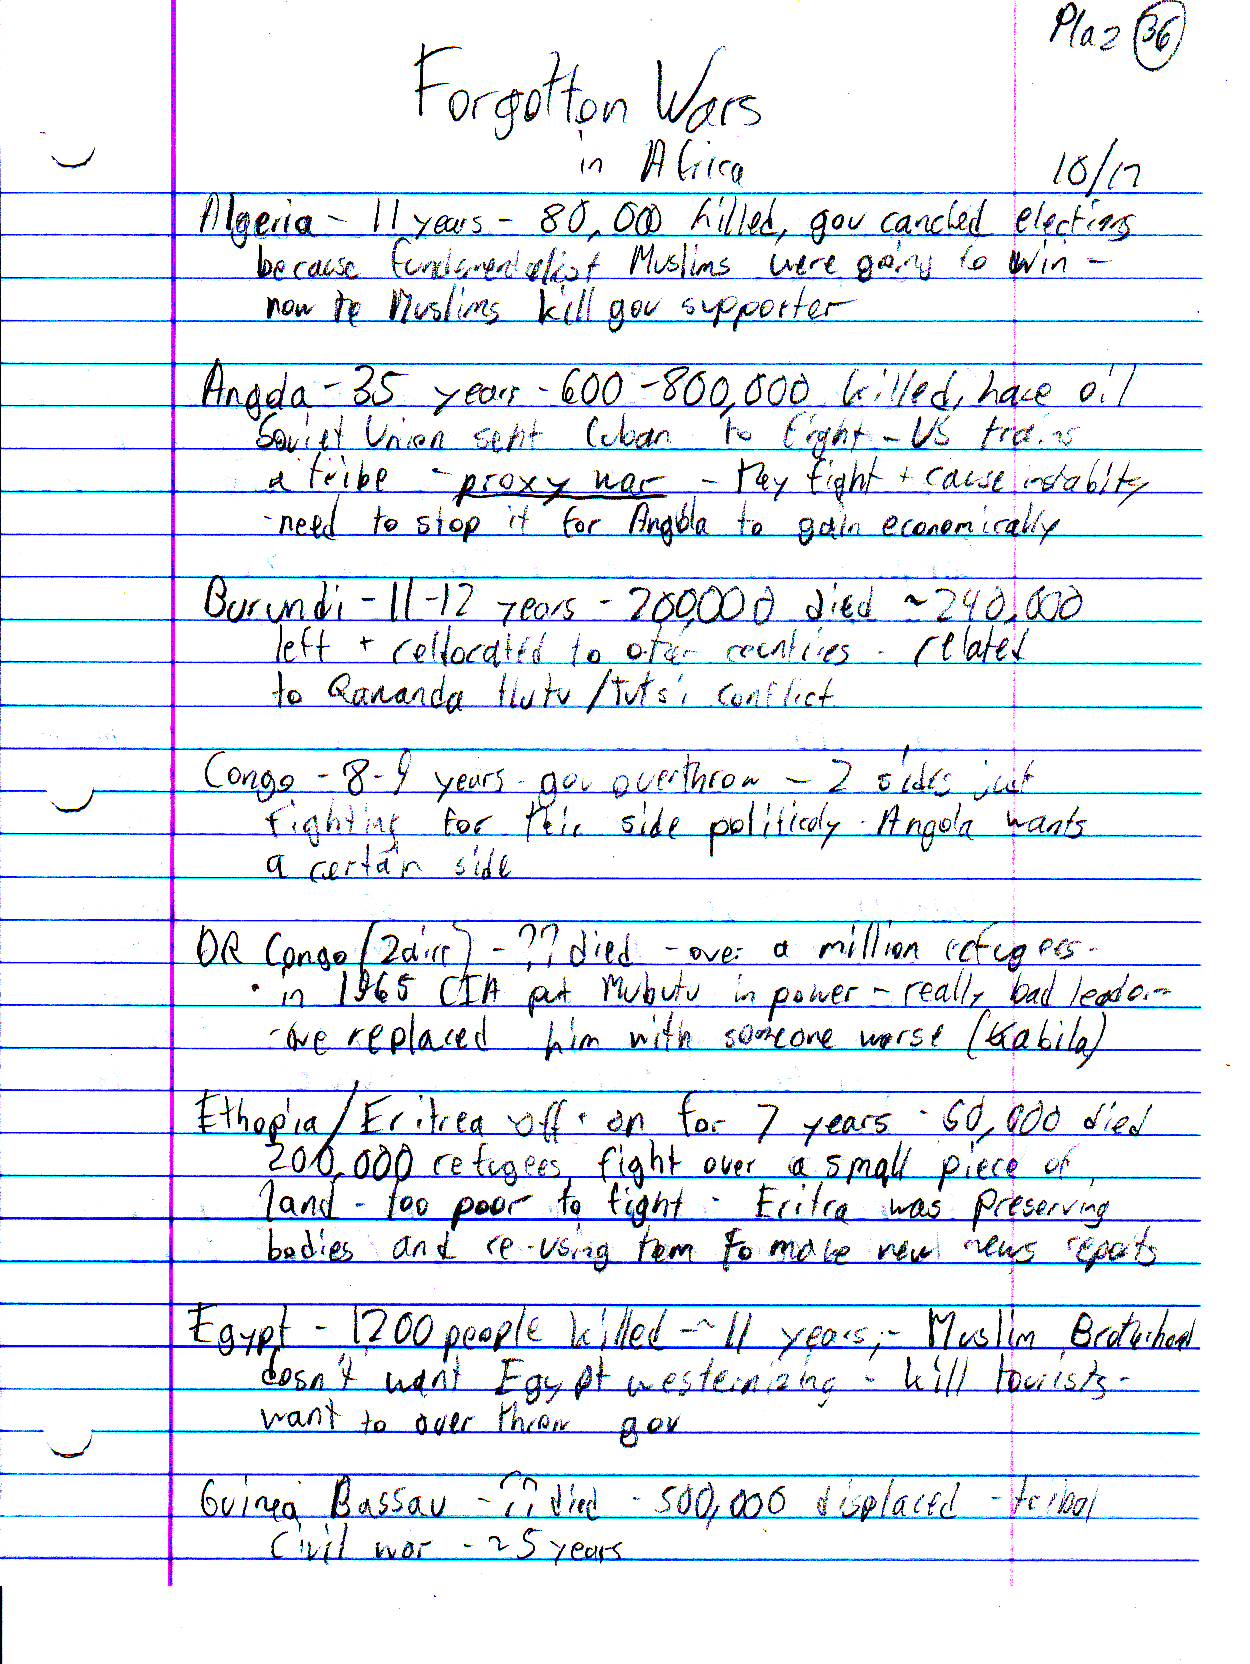 Pla2 36
Forgotton Wars
in Africa
10/17
Algeria - 11 years - 80,000 killed, gov cancled elections
because fundamentalist Muslims were going to win -
now te Muslims kill gov supporter
Angola - 35 years - 600-800,000 killed, have oil
Soviet Union sent Cuban to fight - US trains
a tribe - proxy war - They fight + cause instablity
- need to stop it for Angola to gain economically
Burundi - 11-12 years - 200,000 died ~240,000
left + rellocated to other countries - related
to Hutu/Tutsi conflict
Congo - 8-9 years - gov overthrow - 2 sides just
fighting for their side politicaly - Angola wants
a certain side
DR Congo (Zaire) - ?? died - over a million refugees -
• in 1965 CIA put Mubutu in power - really bad leader -
- we replaced him with someone worse (Kabila)
Ethopia/Eritrea off + on for 7 years - 60,000 died
200,000 refugees, fight over a small piece of
land - too poor to fight - Eritra was preserving
bodies and re-using tem to make new news reports
Egypt - 1200 people killed - ~11 years, - Muslim Broterhood
dosn't want Egypt westernizing - kill tourists -
want to over throw gov
Guinea Bassau - ?? died - 500,000 displaced - tribal
Civil war - ~5 years